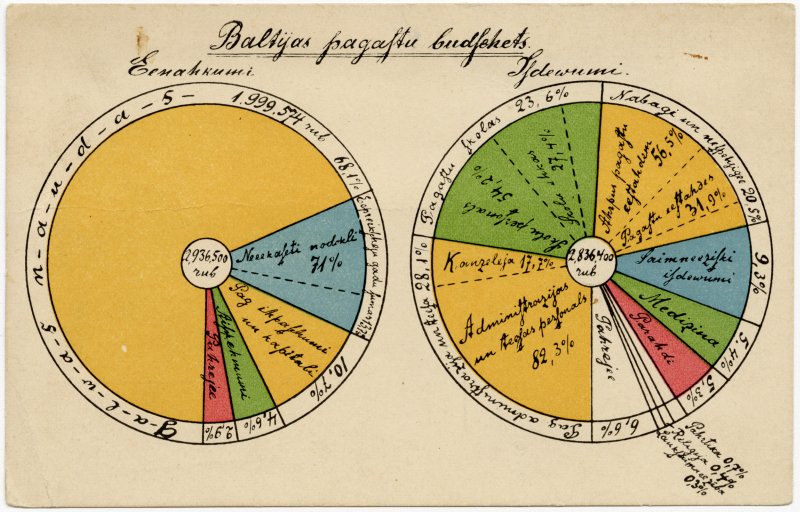 Baltijas pagastu budschets.
Eenahkumi
g-a-l-w-a-s n-a-u-d-a-s - 1.999.574 rub 68,1%
Eepreekschejo gadu 13,7%
Neeekasēti nodokli
71%
Pag ihpaschumi
un kapitali
10,7%
Aisnehmumi
4,6%
Pahrejee
2,9%
2,936,500
rub
Isdewumi.
Pagastu skolas 23,6%
Skolu personals
54,2%
Skolu ehkas
27,4%
Nabagi un nespehjigee 20,5%
Ahrpus pagastu
eestahdem
56,5%
Pagasta eestahdes
31,9%
Saimneeziski
isdewumi
9,3%
Medizina
5,4%
Parahdi
5,3%
Pahrtika 0,7%
Religija 0,4%
Lauksaimneeziba
0,3%
Pahrejee
6,6%
Pag administrazija un teesa 28,1%
Kanzeleja 17,7%
Administrazijas
un teesas personals
82,3%
2,836,400
rub